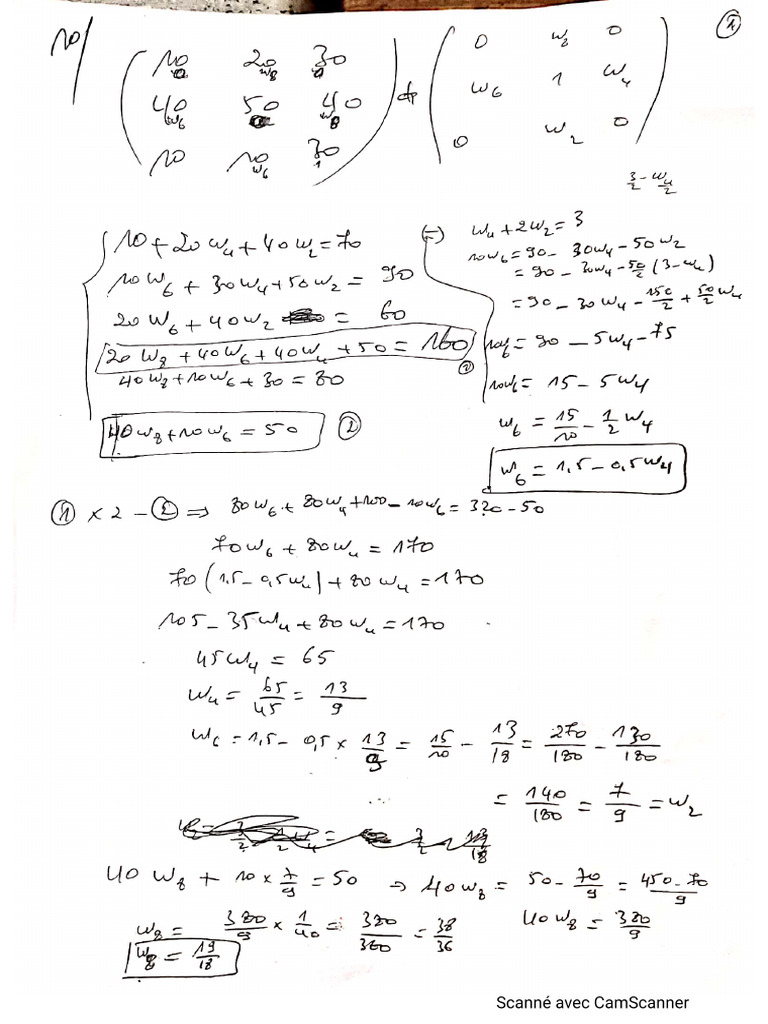 10/
①
( 10 20 30 ) dp ( 0 w₈ 0 )
( 40 50 40 ) ( w₆ 1 w₄ )
( 10 10 30 ) ( 0 w₂ 0 )
3/2 - w₄/2
10 + 20w₄ + 40w₂ = 70
10w₆ + 30w₄ + 50w₂ = 90
20w₆ + 40w₂ = 60
20w₈ + 40w₆ + 40w₄ + 50 = 160 ①
40w₈ + 10w₆ + 30 = 80
40w₈ + 10w₆ = 50 ②
(=) w₄ + 2w₂ = 3
10w₆ = 90 - 30w₄ - 50w₂
= 90 - 30w₄ - 50/2 (3 - w₄)
= 90 - 30w₄ - 150/2 + 50/2 w₄
10w₆ = 90 - 5w₄ - 75
10w₆ = 15 - 5w₄
w₆ = 15/10 - 1/2 w₄
w₆ = 1,5 - 0,5w₄
① × 2 - ② ⇒ 80w₆ + 80w₄ + 100 - 10w₆ = 320 - 50
70w₆ + 80w₄ = 170
70(1,5 - 0,5w₄) + 80w₄ = 170
105 - 35w₄ + 80w₄ = 170
45w₄ = 65
w₄ = 65/45 = 13/9
w₆ = 1,5 - 0,5 × 13/9 = 15/10 - 13/18 = 270/180 - 130/180
= 140/180 = 7/9 = w₂
40w₈ + 10 × 7/9 = 50 ⇒ 40w₈ = 50 - 70/9 = (450 - 70)/9
40w₈ = 380/9
w₈ = 380/9 × 1/40 = 380/360 = 38/36
w₈ = 19/18
Scanné avec CamScanner